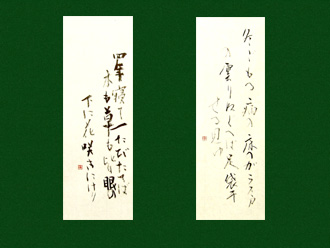 冬ごもる病の床のガラス戸
の曇りぬぐへば足袋干
せる見ゆ
四年寝て一たびたてば
木も草も皆眼の
下に花咲きにけり